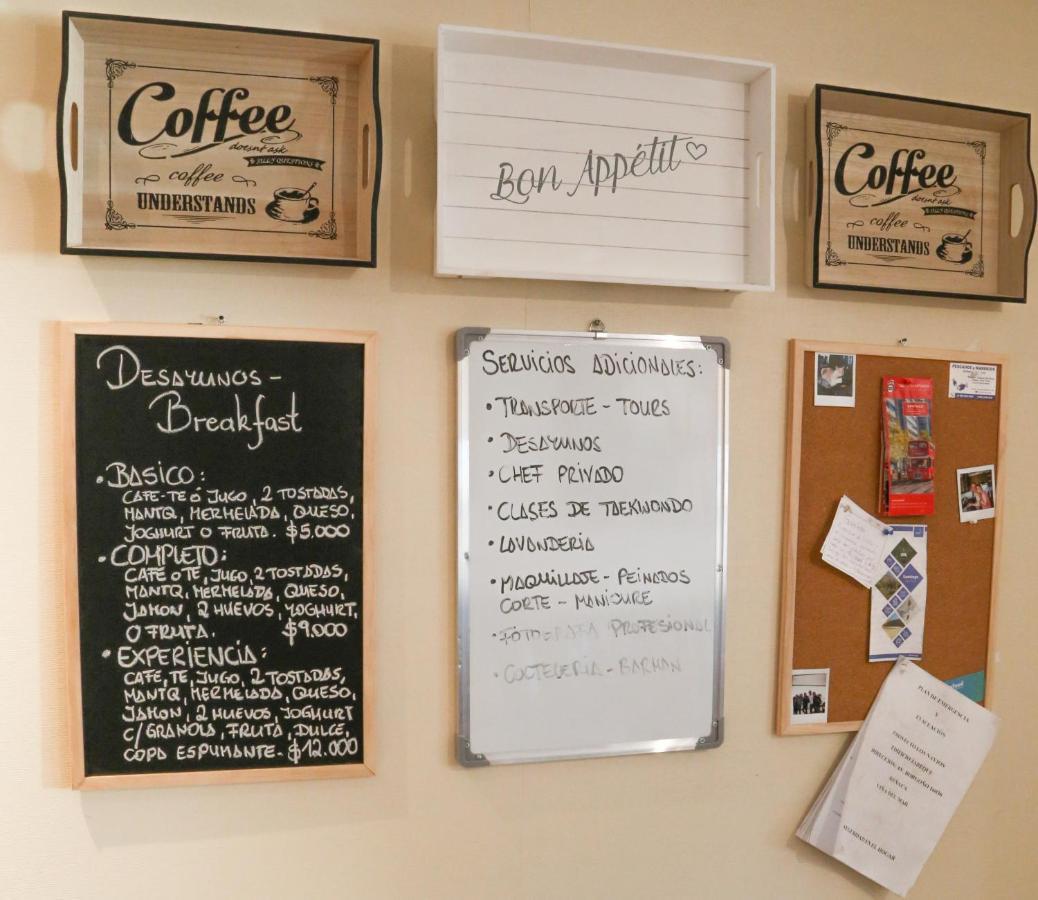 Coffee
doesn't ask
SILLY QUESTIONS
coffee
UNDERSTANDS
Bon Appétit
Coffee
doesn't ask
SILLY QUESTIONS
coffee
UNDERSTANDS
DESAYUNOS -
Breakfast
• BASICO:
CAFE-TE Ó JUGO, 2 TOSTADAS,
MANTQ, MERMELADA, QUESO,
JOGHURT O FRUTA. $5.000
• COMPLETO:
CAFÉ O TE, JUGO, 2 TOSTADAS,
MANTQ, MERMELADA, QUESO,
JAMON, 2 HUEVOS, YOGHURT,
O FRUTA. $9.000
• EXPERIENCIA:
CAFÉ, TE, JUGO, 2 TOSTADAS,
MANTQ, MERMELADA, QUESO,
JAMON, 2 HUEVOS, JOGHURT
C/ GRANOLA, FRUTA, DULCE,
COPA ESPUMANTE. $12.000
SERVICIOS ADICIONALES:
• TRANSPORTE - TOURS
• DESAYUNOS
• CHEF PRIVADO
• CLASES DE TAEKWONDO
• LAVANDERIA
• MAQUILLAJE - PEINADOS
CORTE - MANICURE
• FOTOGRAFIA PROFESIONAL
• COCTELERIA - BARMAN
PESCADOS y MARISCOS
PLAN DE EMERGENCIA
Y
EVACUACIÓN
VIÑA DEL MAR
SEGURIDAD EN EL HOGAR